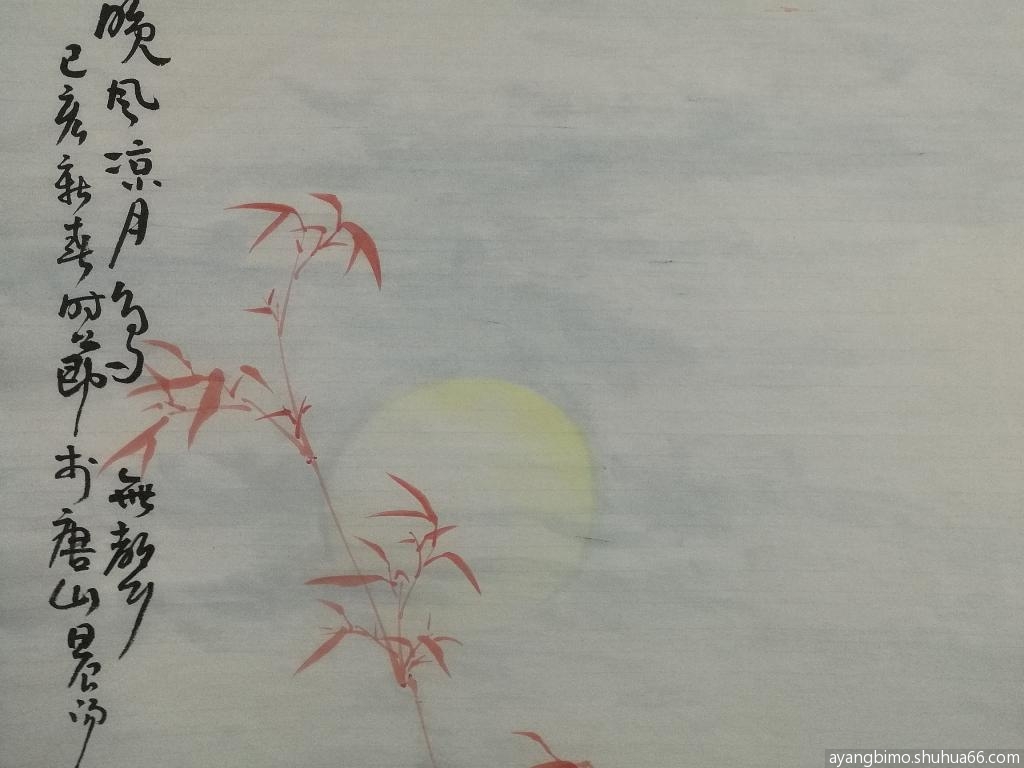 晚风凉月鸟無
己亥新春时節於唐山晨
ayangbimo.shuhua66.com